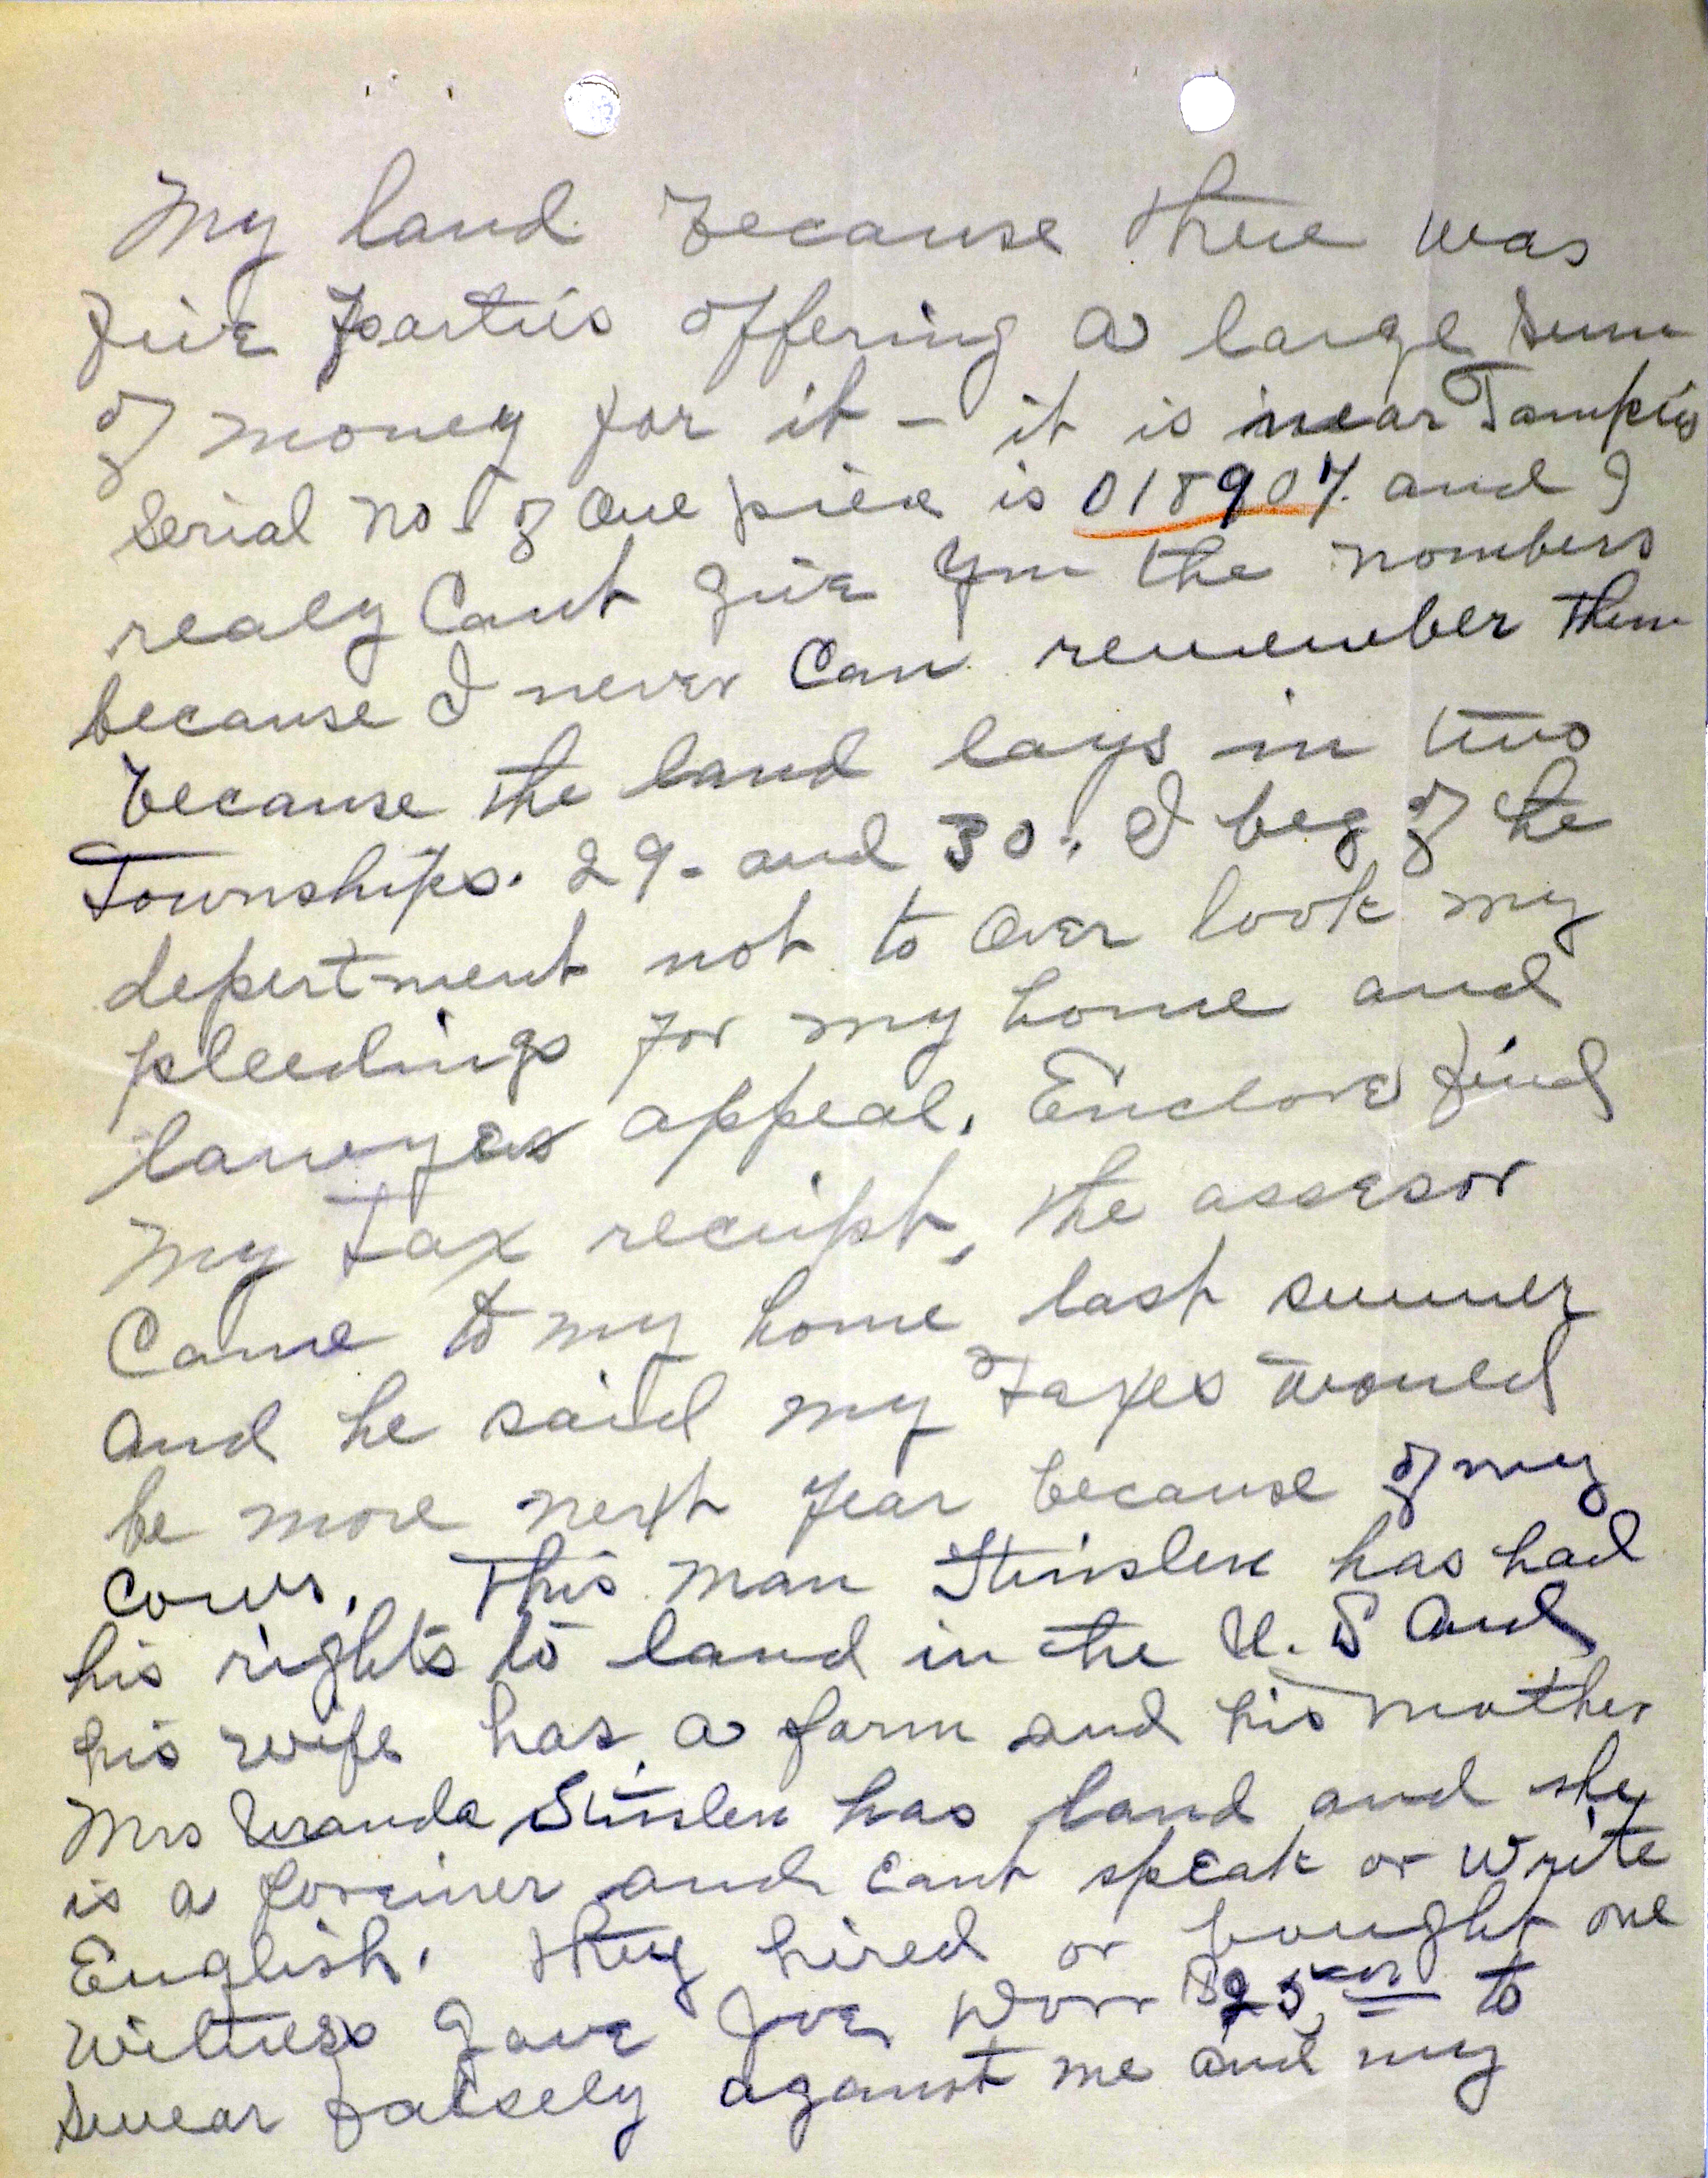 My land because there was
five parties offering a large sum
of money for it – it is near Tampico
Serial No – of one piece is 018907. and I
realy Cant give you the nombers
because I never Can remember them
because the land lays in two
Townships. 29 – and 30. I beg of the
depertment not to over look my
pleedings for my home and
lawyers appeal. Enclose find
My Tax receipt, the assesor
Came to my home last summer
and he said my Taxes would
be more next year because of my
Cows. This man has had
his rights to land in the U. S and
his wife has a farm and his mother
Mrs has land and she
is a foreiner and cant speak or write
English. they hired or bought one
Witness gave Joe $25 to
Swear falsely against me and my